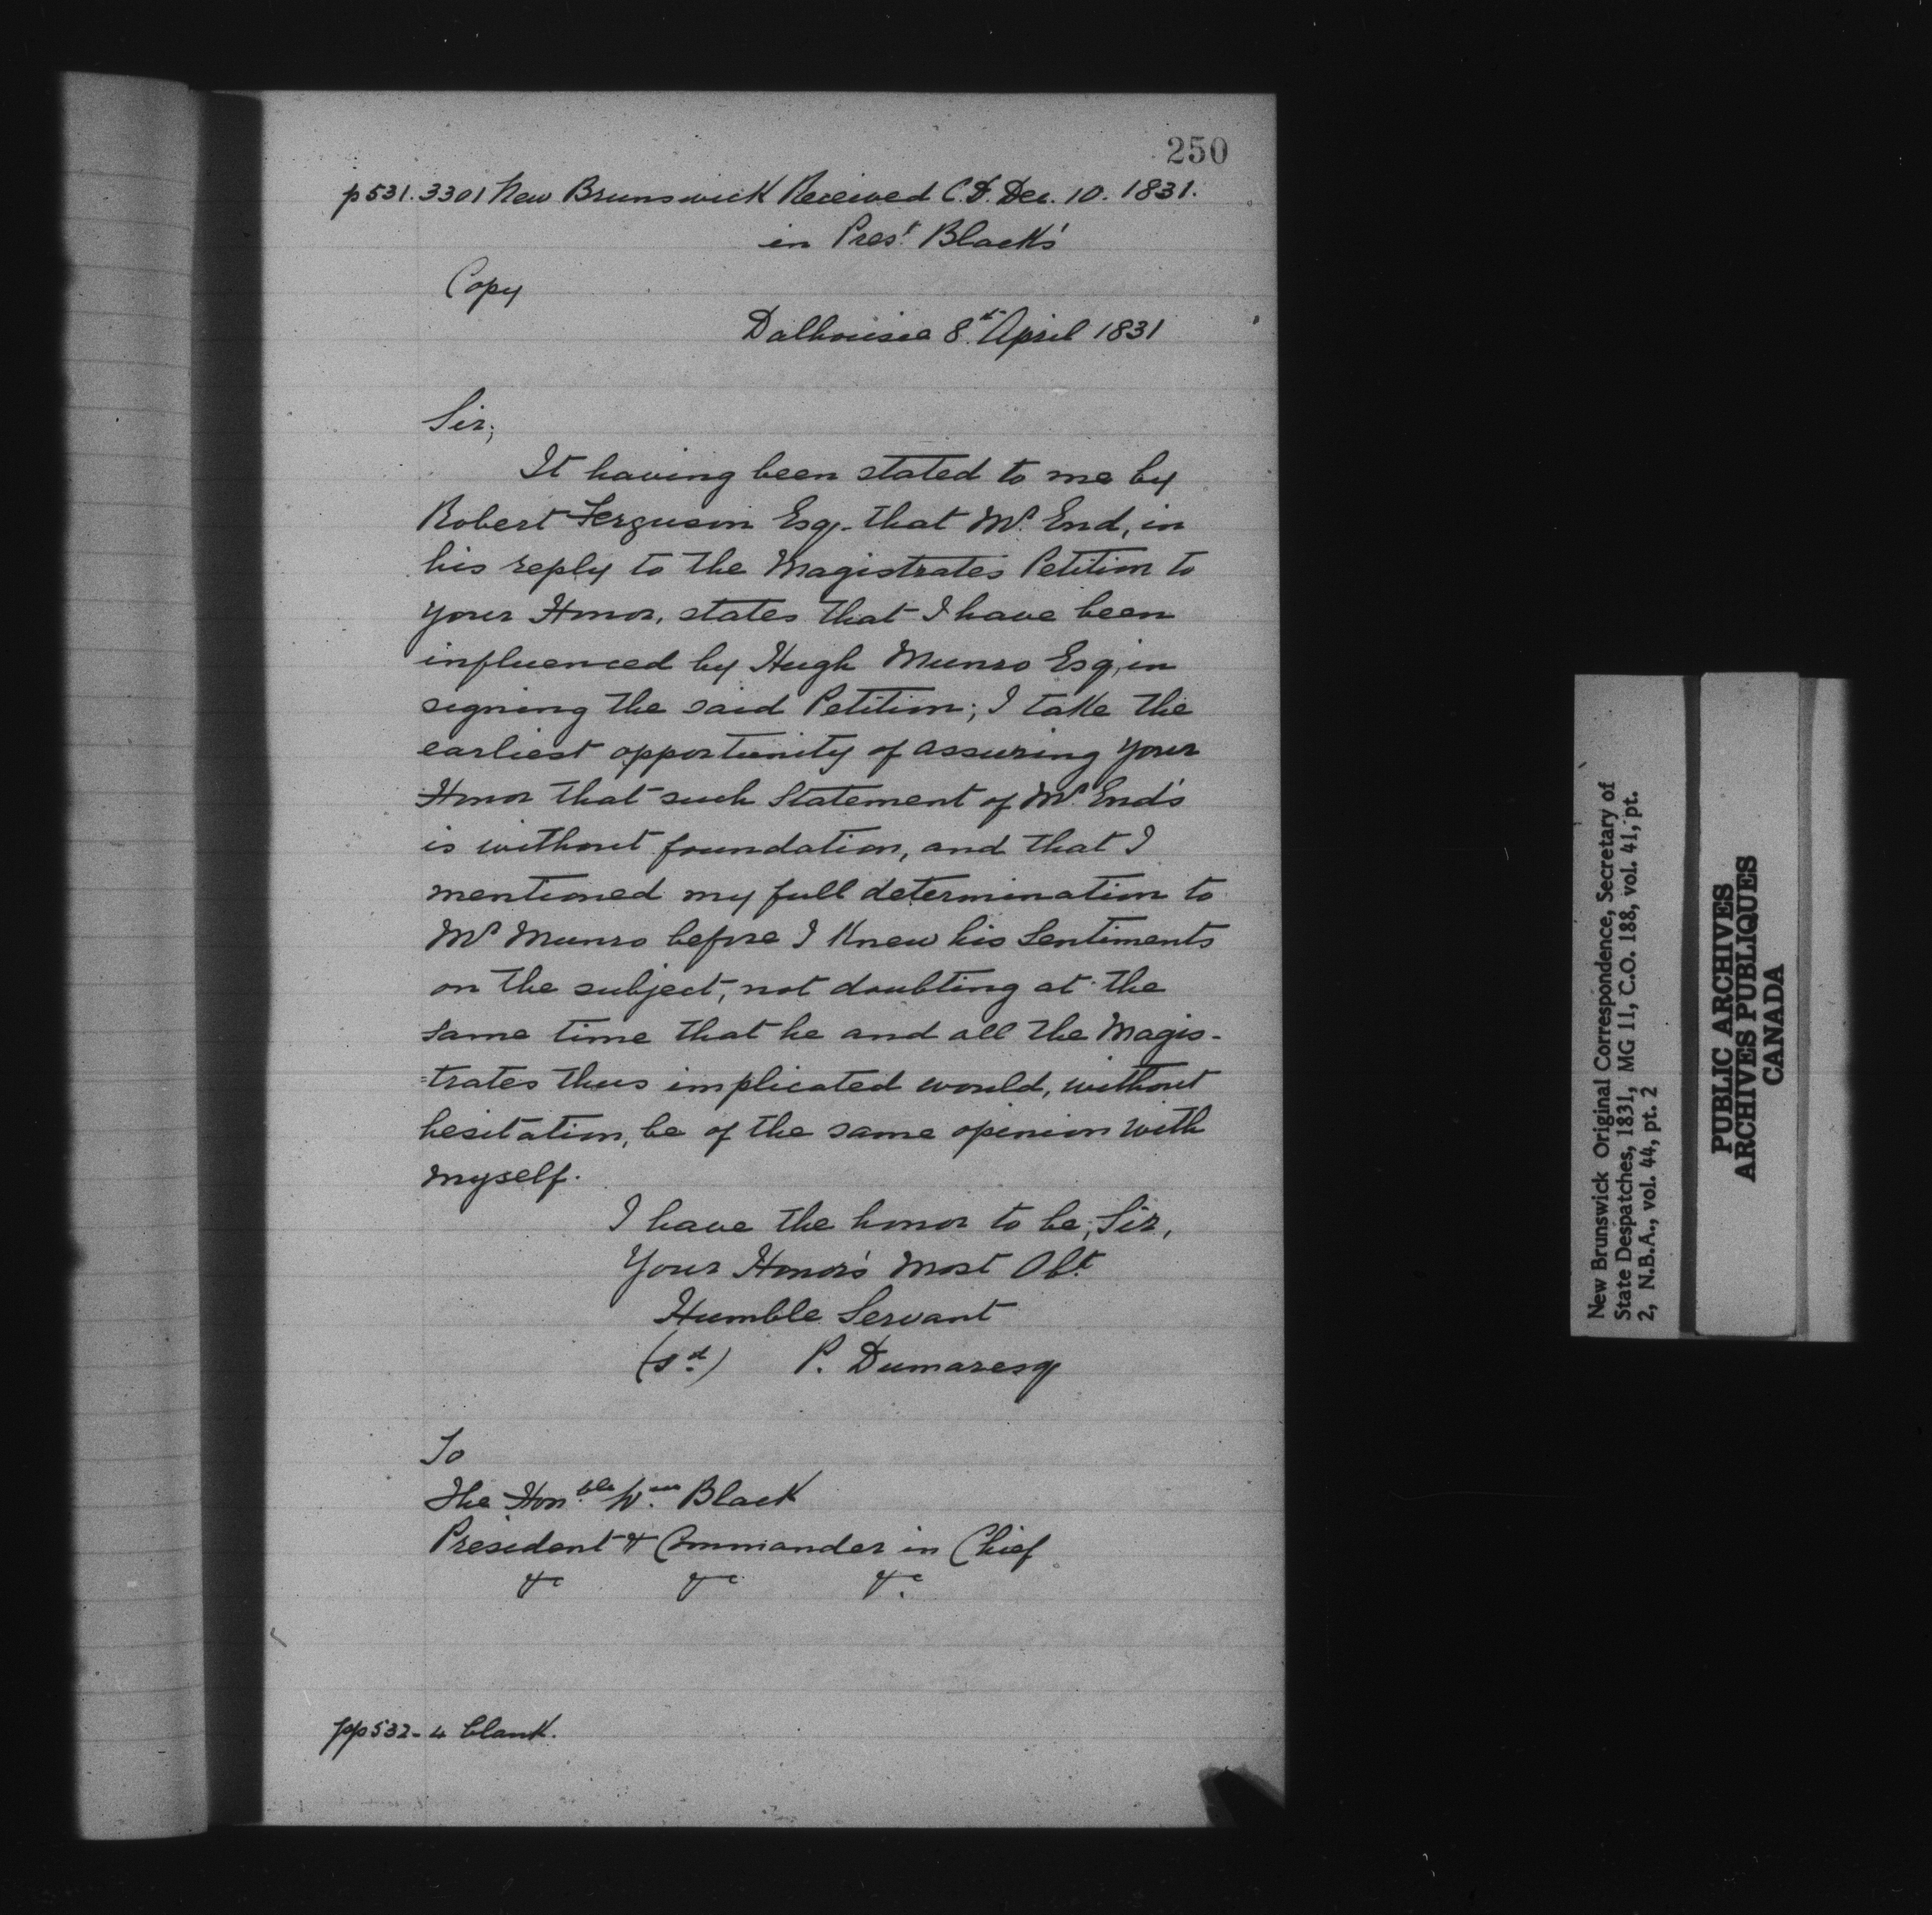 250
p531. 3301 New Brunswick Received C.D. Dec. 10. 1831.
in Prest. Black's
Copy
Dalhousie 8th April 1831
Sir,
It having been stated to me by
Robert Ferguson Esq. that Mr. End, in
his reply to the Magistrates Petition to
your Honor, states that I have been
influenced by Hugh Munro Esq, in
signing the said Petition; I take the
earliest opportunity of assuring your
Honor that such Statement of Mr. End's
is without foundation, and that I
mentioned my full determination to
Mr Munro before I knew his Sentiments
on the subject, not doubting at the
same time that he and all the Magis-
=trates thus implicated would, without
hesitation, be of the same opinion with
myself.
I have the honor to be, Sir,
Your Honor's Most Obt.
Humble Servant
(sd.) P. Dumaresq
To
The Honble. Wm. Black
President & Commander in Chief
&c &c &c.
pp532-4 blank.
New Brunswick Original Correspondence, Secretary of
State Despatches, 1831, MG 11, C.O. 188, vol. 41, pt.
2, N.B.A., vol. 44, pt. 2
PUBLIC ARCHIVES
ARCHIVES PUBLIQUES
CANADA